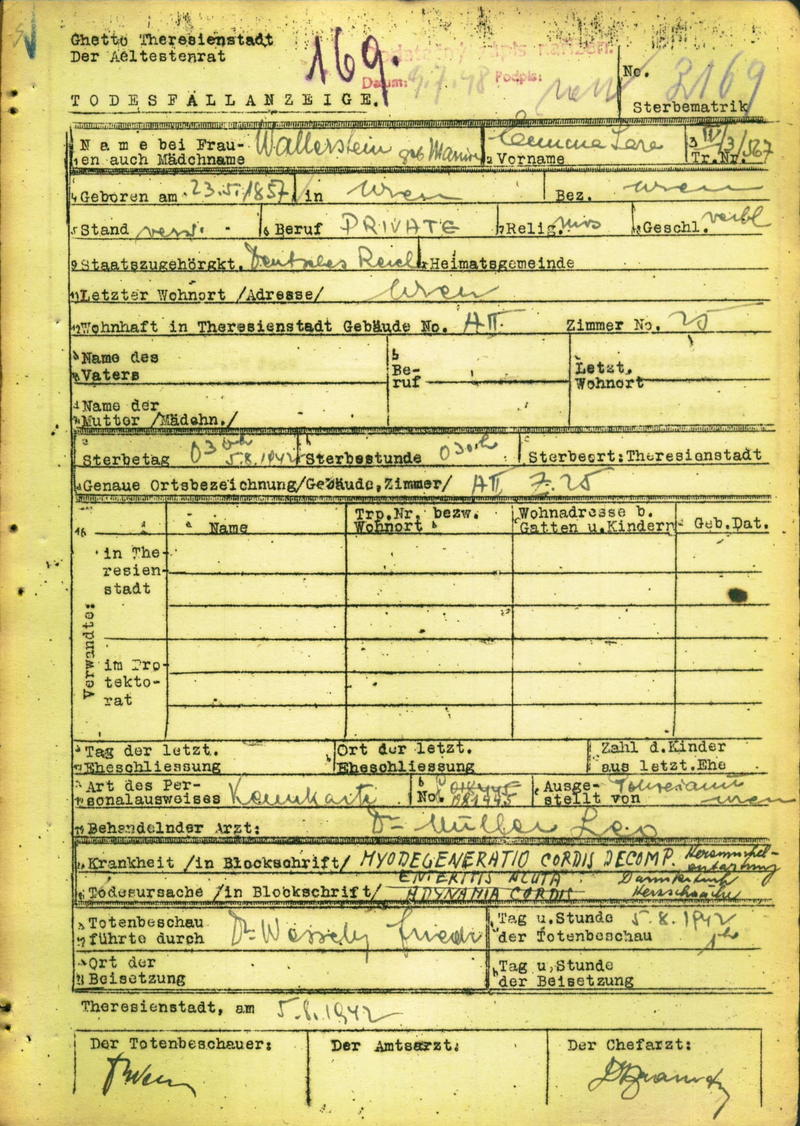 Ghetto Theresienstadt
Der Aeltestenrat
169.
Datum: 9.7.48 Podpis:
No. 3169
TODESFALLANZEIGE.
Sterbematrik
Name bei Frau- Wallerstein geb
en auch Mädchname
Vorname Sara
Tr.Nr. IV/3/567
Geboren am 23.5.1857 in Wien Bez. Wien
Stand verw. Beruf PRIVATE Relig. mos Geschl. weibl
Staatszugehörgkt. Deutsches Reich Heimatsgemeinde
Letzter Wohnort /Adresse/ Wien
Wohnhaft in Theresienstadt Gebäude No. A II Zimmer No. 25
Name des
Vaters
Be-
ruf
Letzt.
Wohnort
Name der
Mutter /Mädchn./
Sterbetag 5.8.1942 Sterbestunde 03 Uhr Sterbeort: Theresienstadt
Genaue Ortsbezeichnung/Gebäude, Zimmer/ A II Z. 25
16 Name
Trp.Nr. bezw.
Wohnort
Wohnadresse b.
Gatten u.Kindern
Geb.Dat.
Verwandte:
in The-
resien-
stadt
im Pro-
tekto-
rat
Tag der letzt.
Eheschliessung
Ort der letzt.
Eheschliessung
Zahl d.Kinder
aus letzt.Ehe
Art des Per-
sonalausweises Kennkarte
No.
Ausge-
stellt von Wien
Behandelnder Arzt: Dr. Müller Leo
Krankheit /in Blockschrift/ MYODEGENERATIO CORDIS DECOMP. Herzmuskel-
entartung
ENTERITIS ACUTA. Darmkatarrh
Todesursache /in Blockschrift/ ADYNAMIA CORDIS. Herzschwäche
Totenbeschau
führte durch Dr. Wessely
Tag u.Stunde 5.8.1942
der Totenbeschau
Ort der
Beisetzung
Tag u.Stunde
der Beisetzung
Theresienstadt, am 5.8.1942
Der Totenbeschauer:
Der Amtsarzt:
Der Chefarzt: